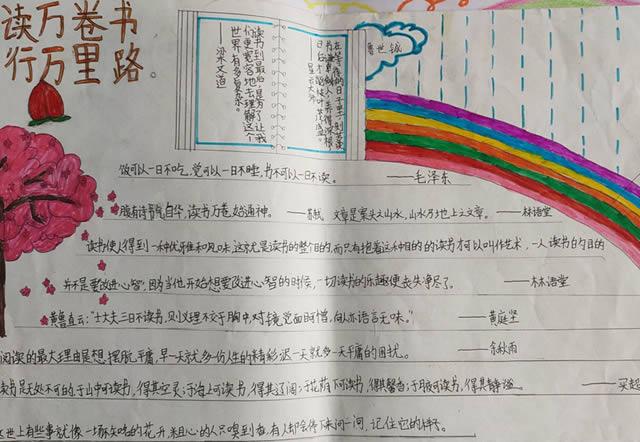 读万卷书
行万里路。
读书到最后,是为了让我
们更宽容地去理解这个
世界有多复杂。
——梁文道
在等待的日子里,刻苦读
书,谦卑做人,养得深根,
日后才能枝叶茂盛。
——星云大师
曹世铭
饭可以一日不吃,觉可以一日不睡,书不可以一日不读。 ——毛泽东
腹有诗书气自华,读书万卷始通神。 ——苏轼 文章是案头之山水,山水乃地上之文章。 ——林语堂
读书使人得到一种优雅和风味,这就是读书的整个目的,而只有抱着这种目的的读书才可以叫作艺术,一人读书的目的
并不是要“改进心智”,因为当他开始想要改进心智的时候,一切读书的乐趣便丧失净尽了。 ——林语堂
黄鲁直云:“士大夫三日不读书,则义理不交于胸中,对镜觉面目可憎,向人亦语言无味。” ——黄庭坚
阅读的最大理由是想摆脱平庸,早一天就多一份人生的精彩;迟一天就多一天平庸的困扰。 ——余秋雨
读书是无处不可的:于山中可读书,得其空灵;于海上可读书,得其辽阔;于花荫下可读书,得其馨香;于月夜可读书,得其静谧。 ——买超
这世上有些事就像一场不知晚的花开,粗心的人只嗅到香,有人却会停下来问一问,记住它的样子。